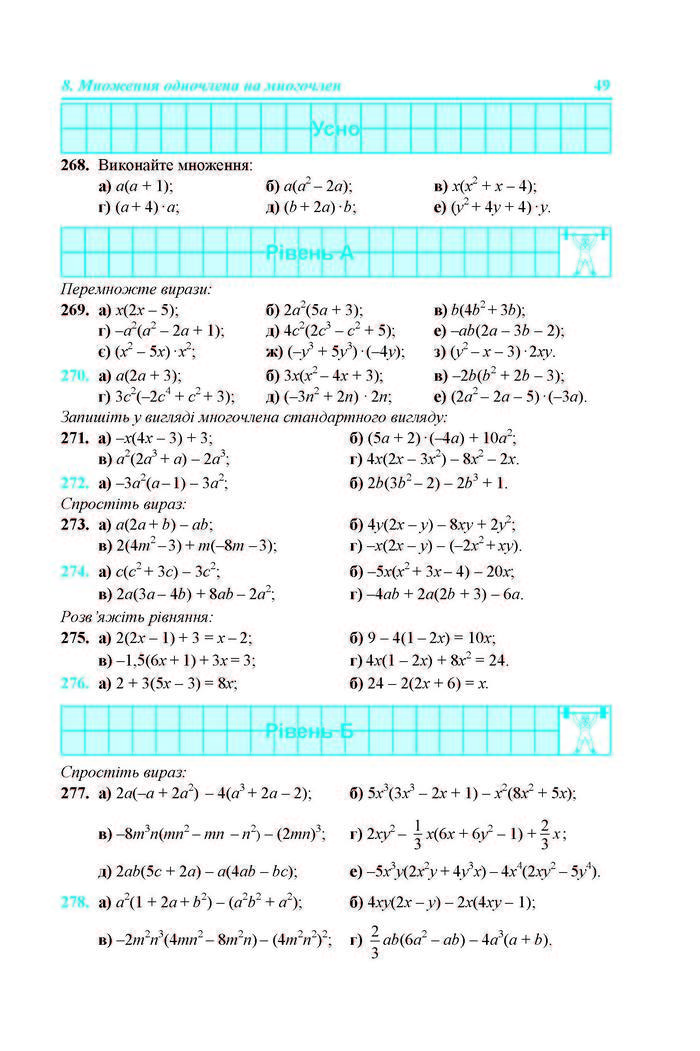 8. Множення одночлена на многочлен 49
Усно
268. Виконайте множення:
а) a(a + 1); б) a(a² – 2a); в) x(x² + x – 4);
г) (a + 4) · a; д) (b + 2a) · b; е) (y² + 4y + 4) · y.
Рівень А
Перемножте вирази:
269. а) x(2x – 5); б) 2a²(5a + 3); в) b(4b² + 3b);
г) –a²(a² – 2a + 1); д) 4c²(2c³ – c² + 5); е) –ab(2a – 3b – 2);
є) (x² – 5x) · x²; ж) (–y³ + 5y³) · (–4y); з) (y² – x – 3) · 2xy.
270. а) a(2a + 3); б) 3x(x² – 4x + 3); в) –2b(b² + 2b – 3);
г) 3c²(–2c⁴ + c² + 3); д) (–3n² + 2n) · 2n; е) (2a² – 2a – 5) · (–3a).
Запишіть у вигляді многочлена стандартного вигляду:
271. а) –x(4x – 3) + 3; б) (5a + 2) · (–4a) + 10a²;
в) a²(2a³ + a) – 2a³; г) 4x(2x – 3x²) – 8x² – 2x.
272. а) –3a²(a – 1) – 3a²; б) 2b(3b² – 2) – 2b³ + 1.
Спростіть вираз:
273. а) a(2a + b) – ab; б) 4y(2x – y) – 8xy + 2y²;
в) 2(4m² – 3) + m(–8m – 3); г) –x(2x – y) – (–2x² + xy).
274. а) c(c² + 3c) – 3c²; б) –5x(x² + 3x – 4) – 20x;
в) 2a(3a – 4b) + 8ab – 2a²; г) –4ab + 2a(2b + 3) – 6a.
Розв’яжіть рівняння:
275. а) 2(2x – 1) + 3 = x – 2; б) 9 – 4(1 – 2x) = 10x;
в) –1,5(6x + 1) + 3x = 3; г) 4x(1 – 2x) + 8x² = 24.
276. а) 2 + 3(5x – 3) = 8x; б) 24 – 2(2x + 6) = x.
Рівень Б
Спростіть вираз:
277. а) 2a(–a + 2a²) – 4(a³ + 2a – 2); б) 5x³(3x³ – 2x + 1) – x²(8x² + 5x);
в) –8m³n(mn² – mn – n²) – (2mn)³; г) 2xy² – 1/3 x(6x + 6y² – 1) + 2/3 x;
д) 2ab(5c + 2a) – a(4ab – bc); е) –5x³y(2x²y + 4y³x) – 4x⁴(2xy² – 5y⁴).
278. а) a²(1 + 2a + b²) – (a²b² + a²); б) 4xy(2x – y) – 2x(4xy – 1);
в) –2m²n³(4mn² – 8m²n) – (4m²n²)²; г) 2/3 ab(6a² – ab) – 4a³(a + b).